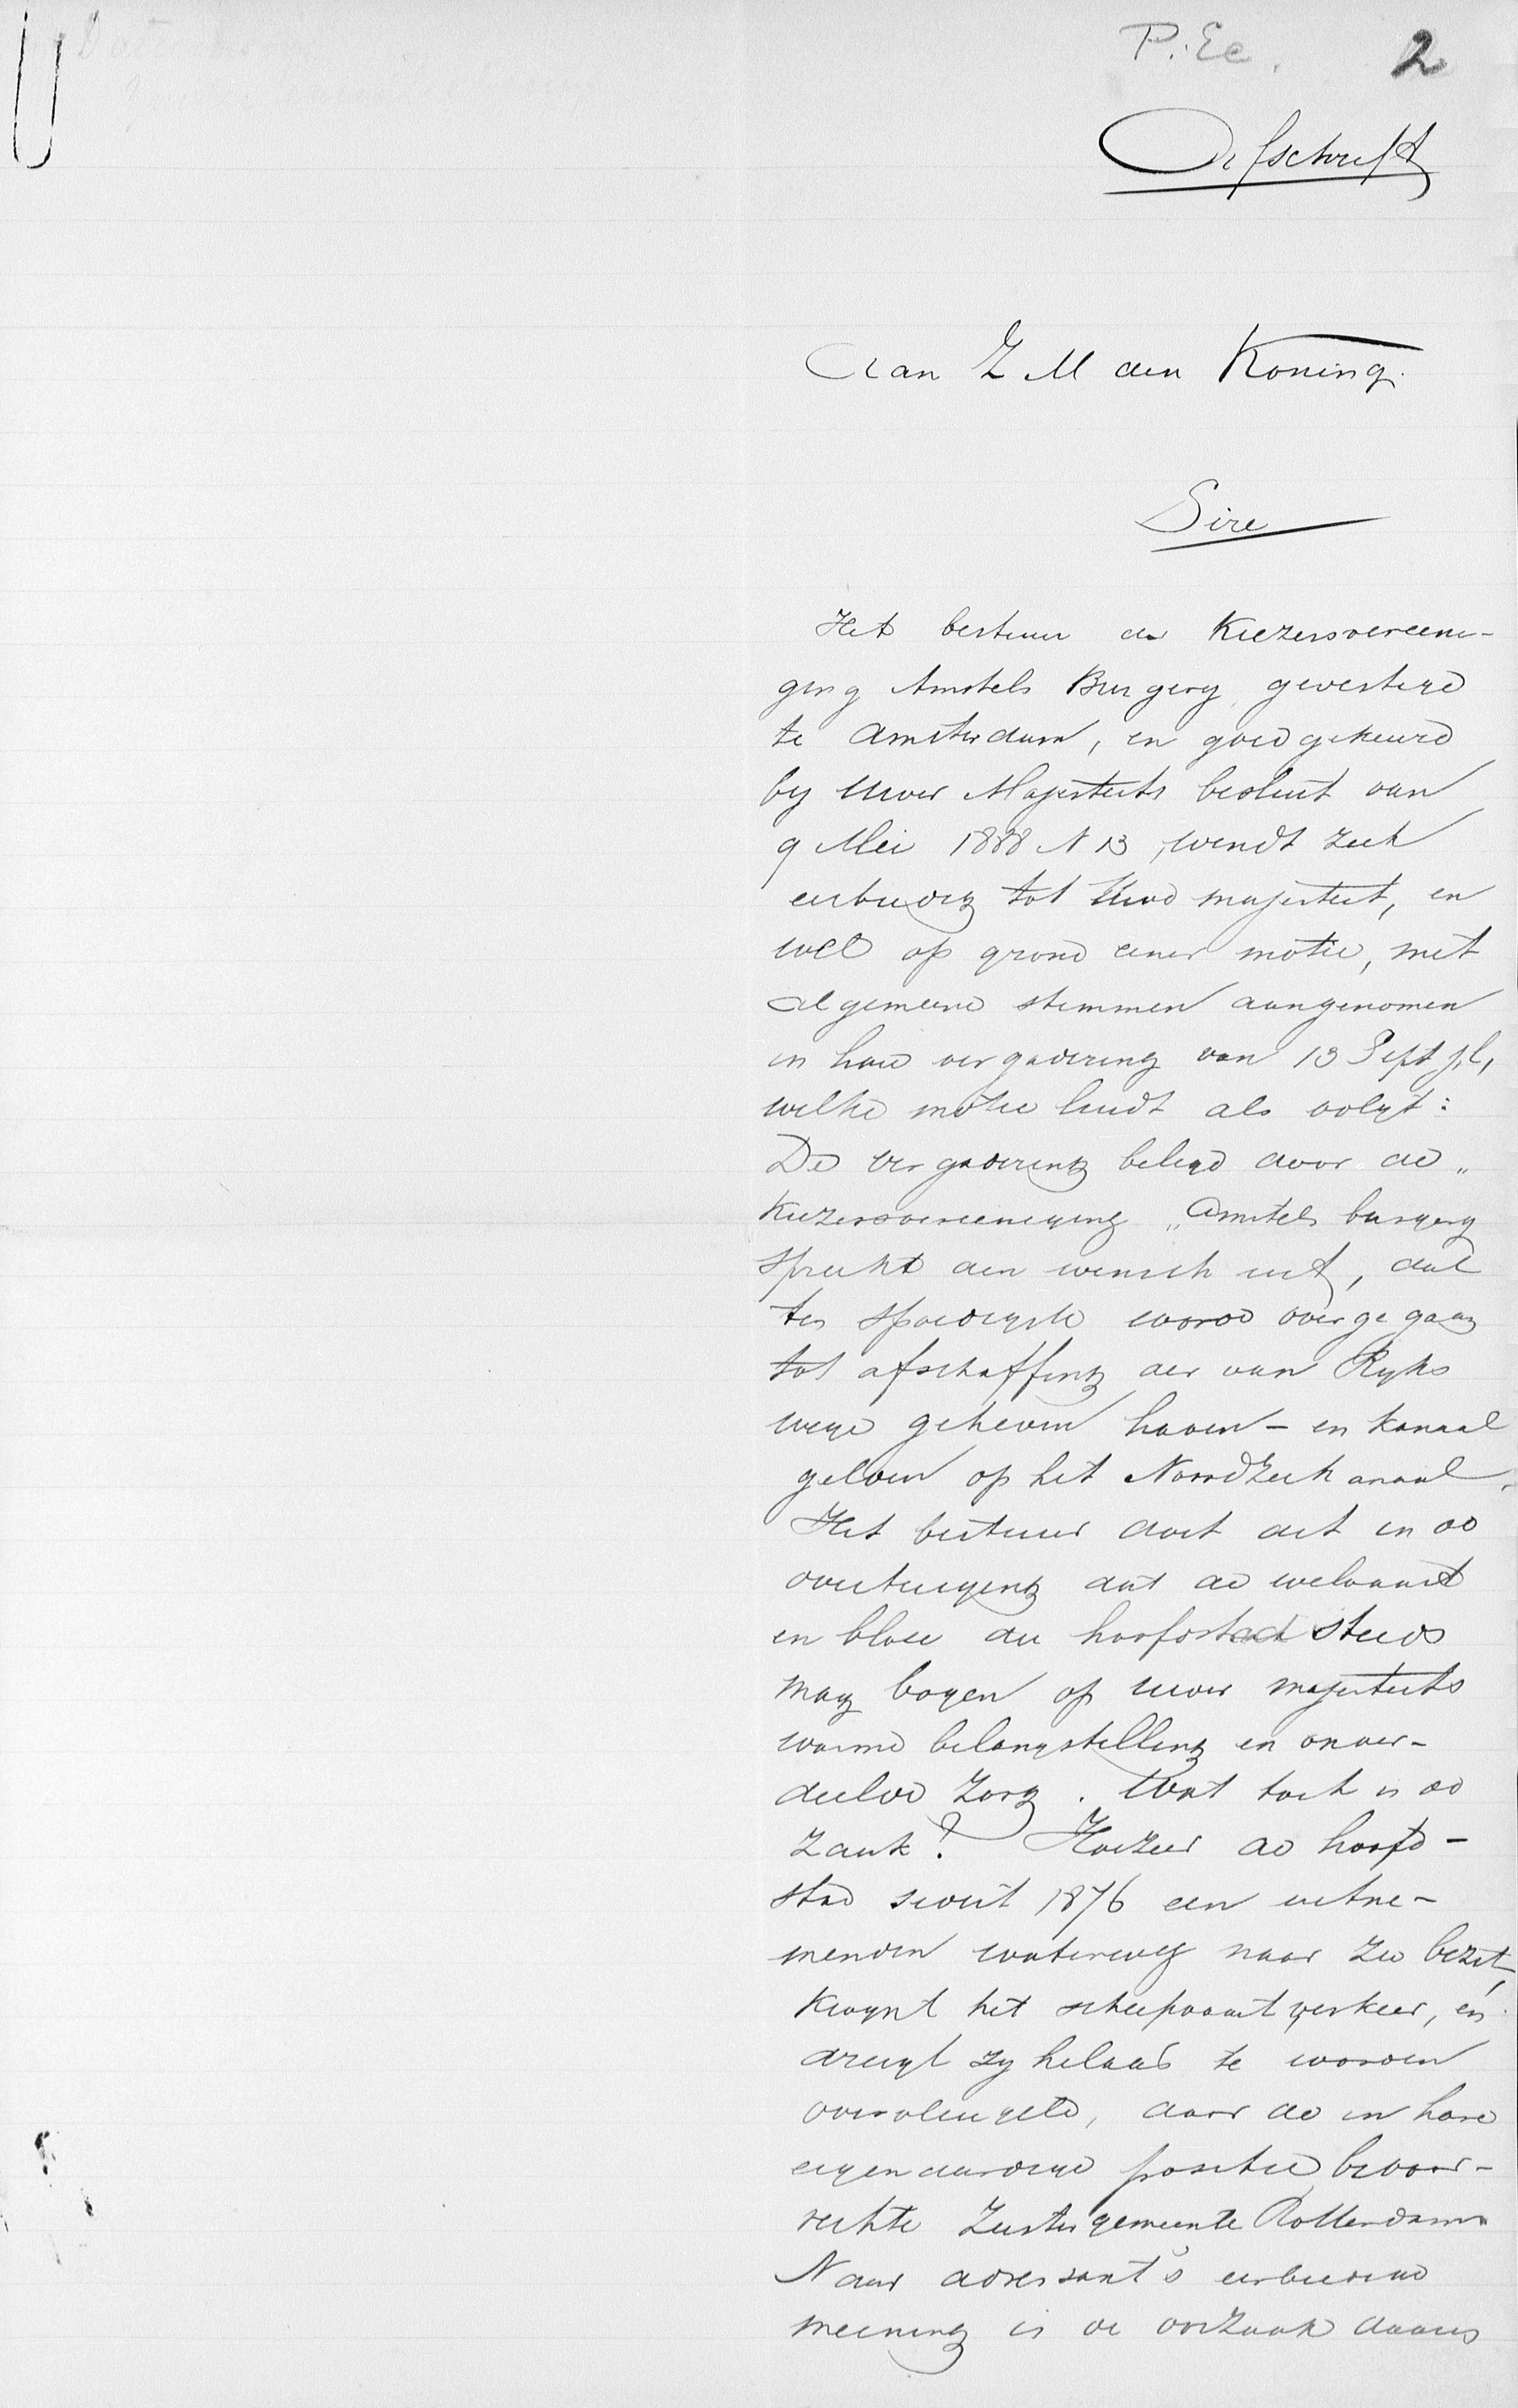 P. Ee. 2
Afschrift
Aan Z M den Koning.
Sire
Het bestuur der Kiezersvereeni-
ging Amstels Burgery, gevestigd
te Amsterdam, en goedgekeurd
by Uwer Majesteits besluit van
9 Mei 1888 N 13, wendt zich
eerbiedig tot Uwe majesteit, en
wel op grond eener motie, met
algemeene stemmen aangenomen
in hare vergadering van 13 Sept jl,
welke motie luidt als volgt:
De vergadering belegd door de „
Kiezersvereeniging „Amstels burgery
spreekt den wensch uit, dat
ten spoedigste worde overgegaan
tot afschaffing der van Ryks
wege geheven haven- en kanaal
gelden op het Noordzeekanaal.
Het bestuur doet dit in de
overtuiging dat de welvaart
en bloei der hoofdstad steeds
mag bogen op uwer majesteits
warme belangstelling en onver-
deelde zorg. Wat toch is de
zaak? Hoezeer de hoofd-
stad sedert 1876 een uitne-
menden waterweg naar zee bezit,
kwynt het scheepvaartverkeer, en
dreigt zy helaas te worden
overvleugeld, door de in hare
eigenaardige positie bevoor-
rechte Zustergemeente Rotterdam
Naar adressant's eerbiedige
meening is de oorzaak daarin